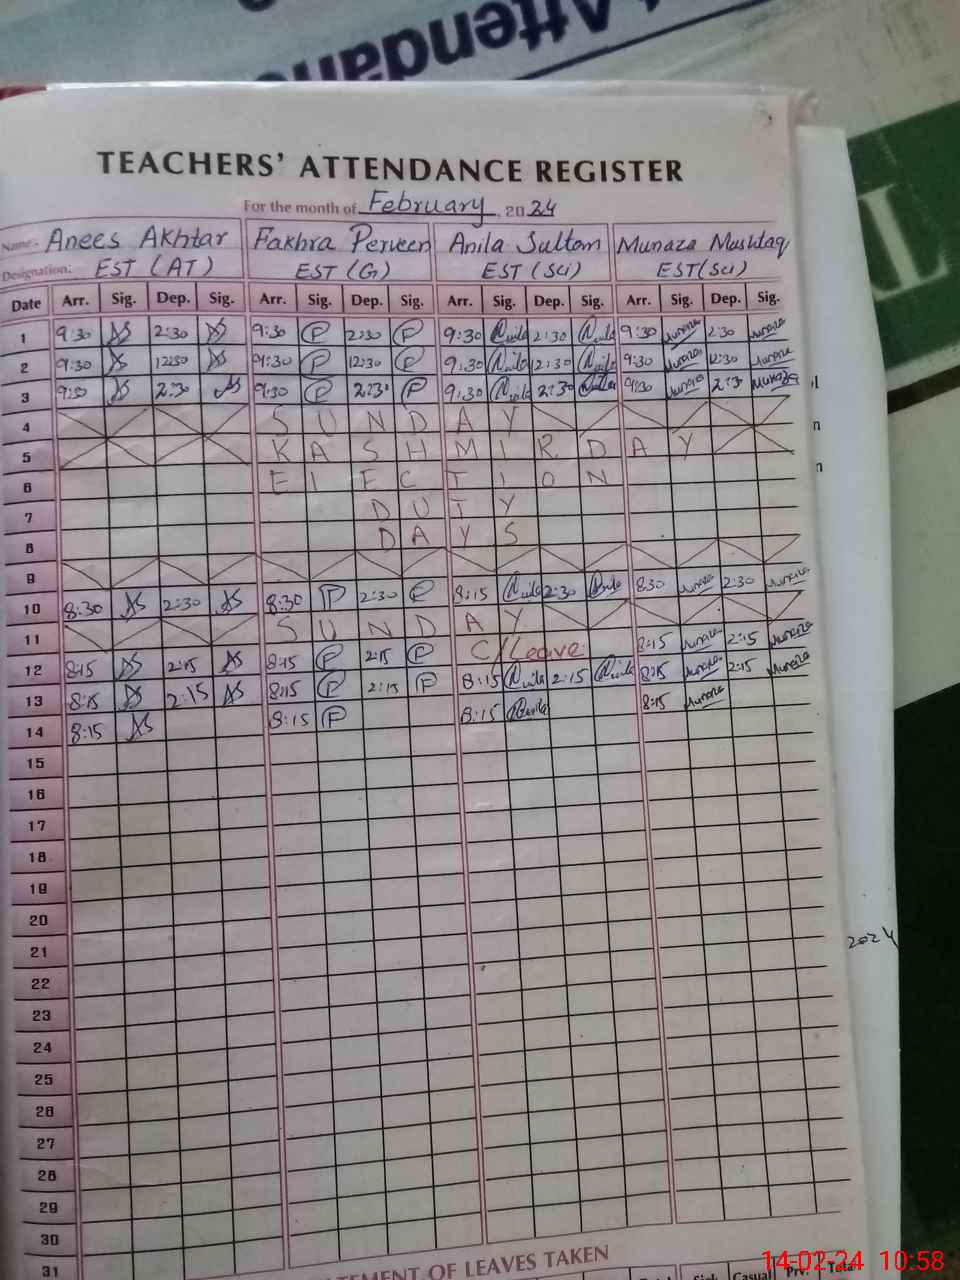 Attendan
TEACHERS' ATTENDANCE REGISTER
For the month of February, 2024
Name:- Anees Akhtar Fakhra Perveen Anila Sultan Munaza Mushtaq
Designation: EST (AT) EST (G) EST (Sci) EST (Sci)
Date Arr. Sig. Dep. Sig. Arr. Sig. Dep. Sig. Arr. Sig. Dep. Sig. Arr. Sig. Dep. Sig.
1 9:30 AS 2:30 AS 9:30 P 2:30 P 9:30 Anila 2:30 Anila 9:30 Munaza 2:30 Munaza
2 9:30 AS 12:30 AS 9:30 P 12:30 P 9:30 Anila 12:30 Anila 9:30 Munaza 12:30 Munaza
3 9:30 AS 2:30 AS 9:30 P 2:30 P 9:30 Anila 2:30 Anila 9:30 Munaza 2:30 Munaza
4 SUNDAY
5 KASHMIR DAY
6 ELECTION
7 DUTY
8 DAYS
9
10 8:30 AS 2:30 AS 8:30 P 2:30 P 8:15 Anila 2:30 Anila 8:30 Munaza 2:30 Munaza
11 SUNDAY
12 8:15 AS 2:15 AS 8:15 P 2:15 P C/Leave 8:15 Munaza 2:15 Munaza
13 8:15 AS 2:15 AS 8:15 P 2:15 P 8:15 Anila 2:15 Anila 8:15 Munaza 2:15 Munaza
14 8:15 AS 8:15 P 8:15 Anila 8:15 Munaza
15
16
17
18
19
20
21
22
23
24
25
26
27
28
29
30
31
2024
TEMENT OF LEAVES TAKEN
Sick Casual Prv. Total
14-02-24 10:58